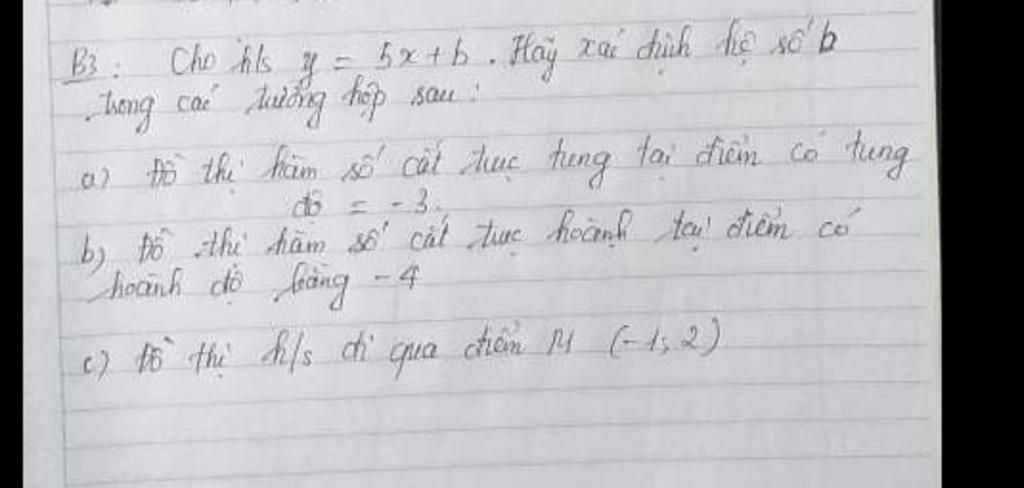 B3: Cho h/s y = 5x + b. Hãy xác định hệ số b
trong các trường hợp sau:
a) Đồ thị hàm số cắt trục tung tại điểm có tung
độ = -3.
b) Đồ thị hàm số cắt trục hoành tại điểm có
hoành độ bằng -4
c) Đồ thị h/s đi qua điểm M (-1; 2)